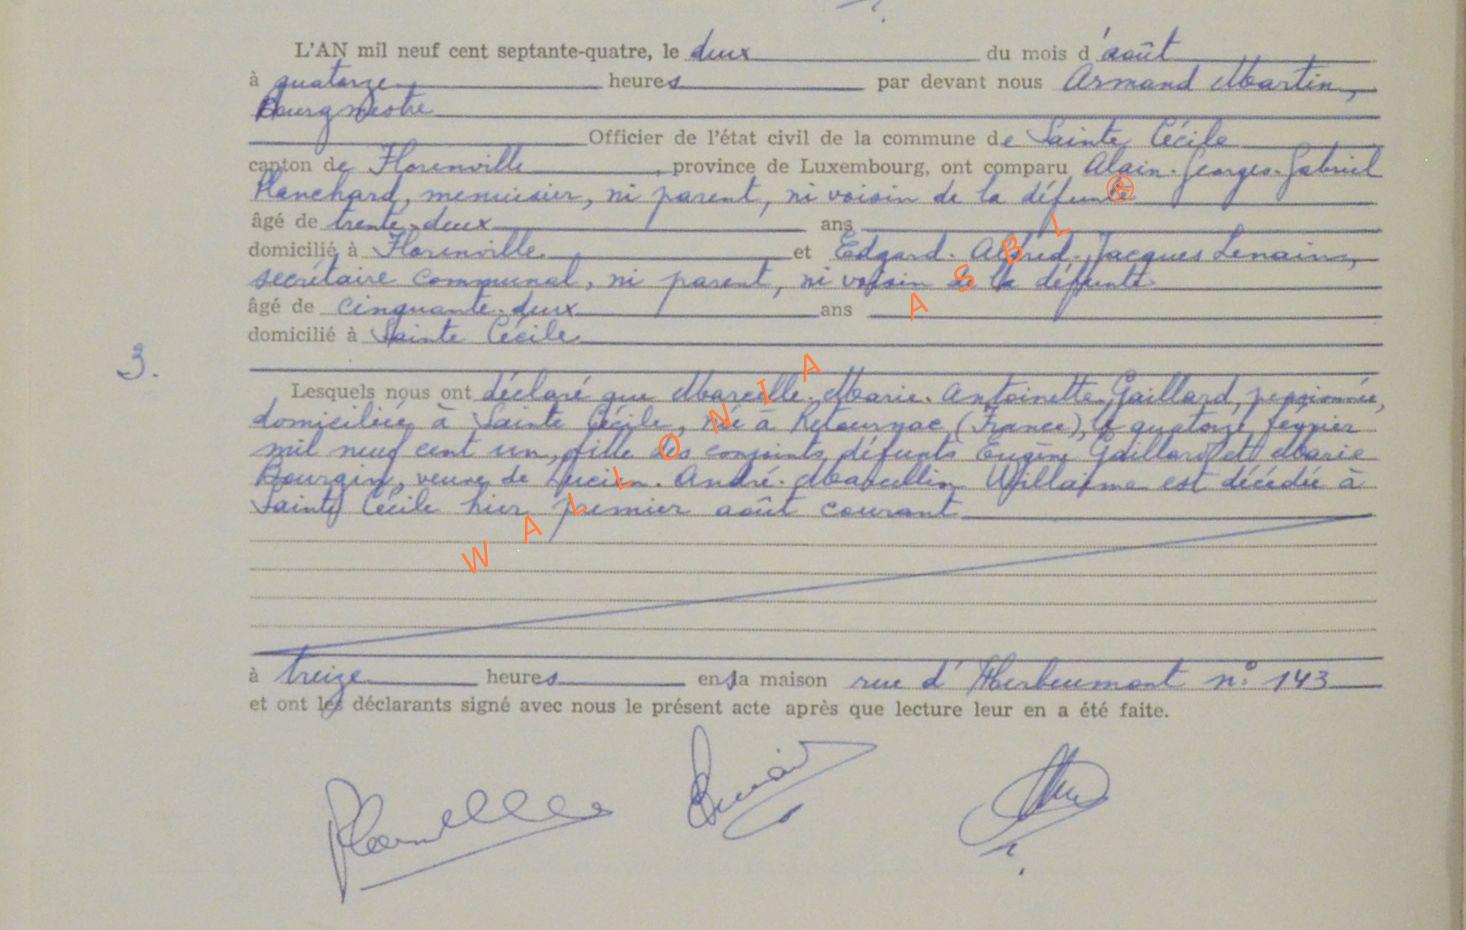 L'AN mil neuf cent septante-quatre, le deux du mois d'août
à quatorze heures par devant nous Armand Martin,
Bourgmestre
Officier de l'état civil de la commune de Sainte Cécile
canton de Florenville, province de Luxembourg, ont comparu Alain-Georges-Gabriel
Planchard, menuisier, ni parent, ni voisin de la défunte
âgé de trente-deux ans
domicilié à Florenville et Edgard-Alfred-Jacques Lenain,
secrétaire communal, ni parent, ni voisin de la défunte
âgé de cinquante-deux ans
domicilié à Sainte Cécile
3.
Lesquels nous ont déclaré que Marcelle-Marie-Antoinette Gaillard, pensionnée,
domiciliée à Sainte Cécile, née à Retournac (France), le quatorze février
mil neuf cent un, fille des conjoints défunts Eugène Gaillard et Marie
Bourgin, veuve de Lucien-André-Marcellin Willaume est décédée à
Sainte Cécile hier premier août courant
à treize heures en sa maison rue d'Herbeumont n° 143
et ont les déclarants signé avec nous le présent acte après que lecture leur en a été faite.
WALLONIA ASBL ®